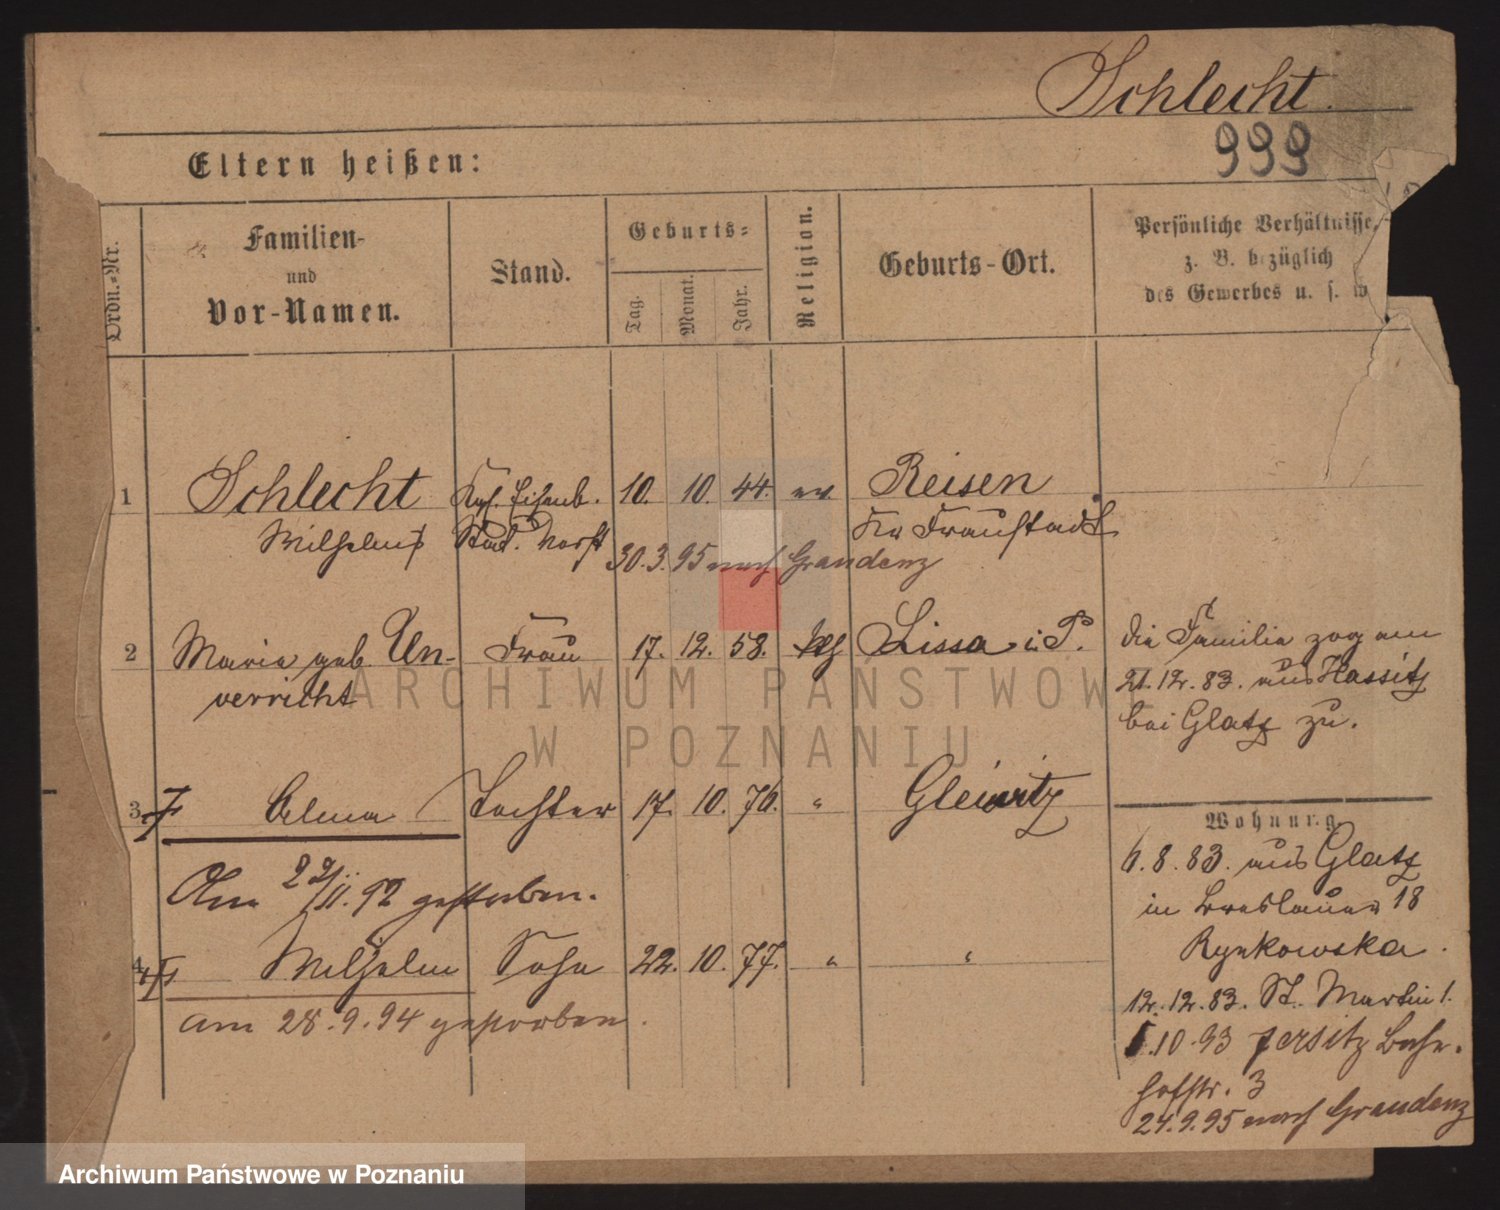 Schlecht.
999
Eltern heißen:
Ordn.-Nr.
Familien-
und
Vor-Namen.
Stand.
Geburts-
Tag.
Monat.
Jahr.
Religion.
Geburts-Ort.
Persönliche Verhältnisse,
z. B. bezüglich
des Gewerbes u. s. w
1 Schlecht Kgl. Eisenb. 10. 10. 44. ev. Reisen
Wilhelm Stat. Vorst Kr Fraustadt
30.3.95 nach Graudenz
2 Maria geb. Un- Frau 17. 12. 58. Lissa i. P.
verricht
die Familie zog am
21.12.83. aus Hassitz
bei Glatz zu.
3 Alma Tochter 17. 10. 76. " Gleiwitz
Am 22/11.92 gestorben.
4 Wilhelm Sohn 22. 10. 77. " "
am 28.9.94 gestorben.
Wohnung
6.8.83. aus Glatz
in Breslauer 18
Rynkowska.
12.12.83. St. Martin 1.
1.10.93 Jersitz Bahn-
hofstr. 3
24.9.95 nach Graudenz
ARCHIWUM PAŃSTWOWE
W POZNANIU
Archiwum Państwowe w Poznaniu